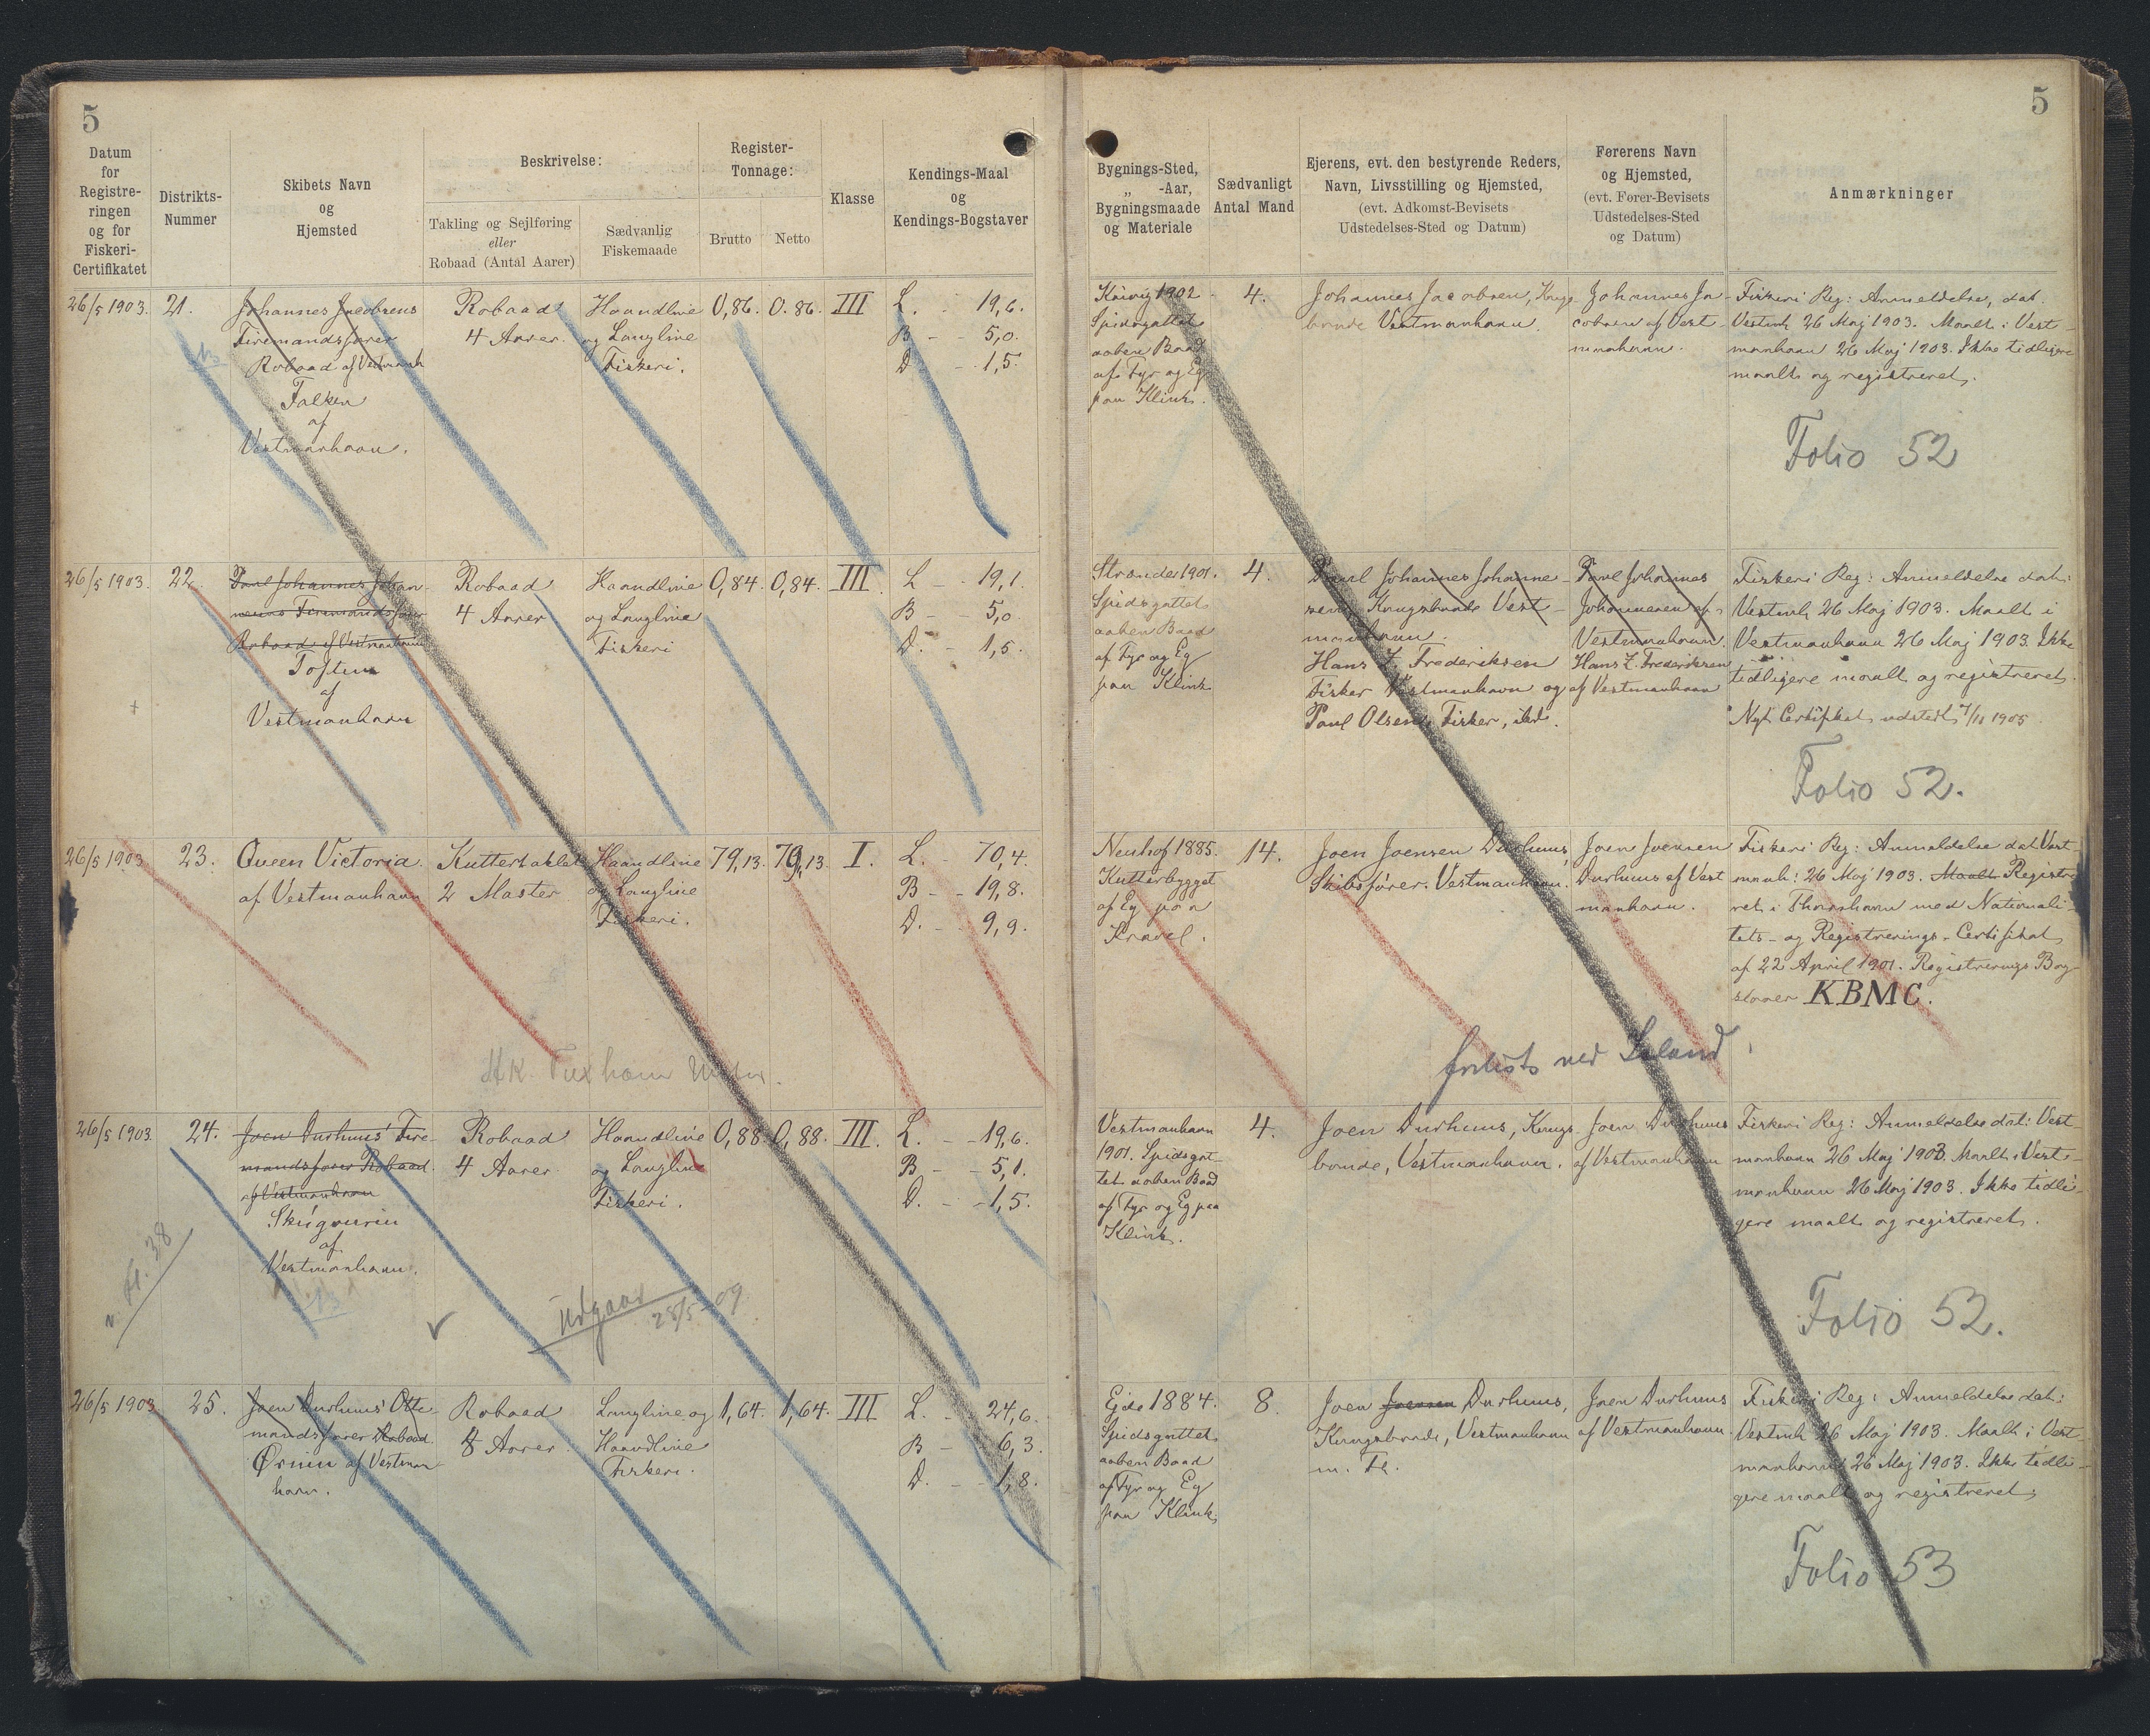 5
5
Datum
for
Registre-
ringen
og for
Fiskeri-
Certifikatet
Distrikts-
Nummer
Skibets Navn
og
Hjemsted
Beskrivelse:
Takling og Sejlføring
eller
Robaad (Antal Aarer)
Sædvanlig
Fiskemaade
Register-
Tonnage:
Brutto
Netto
Klasse
Kendings-Maal
og
Kendings-Bogstaver
Bygnings-Sted,
„ -Aar,
Bygningsmaade
og Materiale
Sædvanligt
Antal Mand
Ejerens, evt. den bestyrende Reders,
Navn, Livsstilling og Hjemsted,
(evt. Adkomst-Bevisets
Udstedelses-Sted og Datum)
Førerens Navn
og Hjemsted,
(evt. Fører-Bevisets
Udstedelses-Sted
og Datum)
Anmærkninger
26/5 1903.
21.
Johannes Jacobsens
Firemandsfarer
Robaad af Vestmanh
Falken
af
Vestmanhavn.
Robaad
4 Aarer.
Haandline
og Langline
Fiskeri.
0,86.
0.86.
III
L. - 19,6.
B - 5,0.
D. - 1,5.
1902
Spidsgattet
aaben Baad
af Fyr og Eg
paa Klink.
4.
Johannes Jacobsen, Kongs-
bonde Vestmanhavn.
Johannes Ja-
cobsen af Vest-
manhavn.
Fiskeri Reg: Anmeldelse, dat.
Vestmh 26 Maj 1903. Maalt i Vest-
manhavn 26 Maj 1903. Ikke tidligere
maalt og registreret.
Folio 52
26/5 1903.
22.
Paul Johannes Johan-
nesens Firemandsfarer
Robaad af Vestmanhavn
Toften
af
Vestmanhavn
Robaad
4 Aarer
Haandline
og Langline
Fiskeri
0,84.
0,84.
III.
L - 19,1
B - 5,0
D. - 1,5.
Strender 1901.
Spidsgattet
aaben Baad
af Fyr og Eg
paa Klink
4.
Paul Johannes Johanne-
sen, Kongsbonde Vest-
manhavn.
Hans Z. Frederiksen
Fisker Vestmanhavn og
Paul Olsen, Fisker, ibd.
Paul Johannes
Johannesen af
Vestmanhavn.
Hans Z. Frederiksen
af Vestmanhavn
Fiskeri Reg: Anmeldelse dat:
Vestmh 26 Maj 1903. Maalt i
Vestmanhavn 26 Maj 1903. Ikke
tidligere maalt og registreret.
Nyt Certifikat udstedt 7/11 1905.
Folio 52.
26/5 1903
23.
Queen Victoria.
af Vestmanhavn
Kuttertaklet
2 Master
Haandline
og Langline
Fiskeri.
79,13.
79,13
I.
L. - 70,4.
B - 19,8.
D. - 9,9.
Tuxham
Neuhof 1885.
Kutterbygget
af Eg paa
Kravel.
14.
Joen Joensen Durhuus,
Skibsfører. Vestmanhavn.
Joen Joensen
Durhuus af Vest
manhavn.
Fiskeri Reg: Anmeldelse dat Vest-
manh: 26 Maj 1903. Maalt Registre
ret i Thorshavn med Nationali-
tets- og Registrerings-Certifikat
af 22 April 1901. Registrerings Bog
staver KBMC.
forlist ved Island.
26/5 1903
24.
Joen Durhuus' Fire-
mandsfarer Robaad.
af Vestmanhavn
Skúgvurin
af
Vestmanhavn.
Robaad
4 Aarer
Haandline
og Langline
Fiskeri.
0,88
0,88.
III.
L. - 19,6.
B - 5,1.
D. - 1,5.
fl. 38
udgaar
28/5-09
Vestmanhavn
1901. Spidsgat-
tet aaben Baad
af Fyr og Eg paa
Klink.
4.
Joen Durhuus, Kongs-
bonde, Vestmanhavn.
Joen Durhuus
af Vestmanhavn
Fiskeri Reg: Anmeldelse dat: Vest-
manhavn 26 Maj 1903. Maalt i Vest-
manhavn 26 Maj 1903. Ikke tidli-
gere maalt og registreret.
Folio 52.
26/5 1903
25.
Joen Durhuus' Otte-
mandsfarer Robaad.
Ørnin af Vestman
havn.
Robaad
8 Aarer.
Langline og
Haandline
Fiskeri.
1,64.
1,64.
III
L. - 24,6.
B - 6,3.
D. - 1,8.
Ejde 1884.
Spidsgattet
aaben Baad
af Fyr og Eg
paa Klink.
8.
Joen Joensen Durhuus,
Kongsbonde, Vestmanhavn
m. Fl.
Joen Durhuus
af Vestmanhavn.
Fiskeri Reg: Anmeldelse dat:
Vestmh 26 Maj 1903. Maalt i Vest-
manhavn 26 Maj 1903. Ikke tidli-
gere maalt og registreret.
Folio 53